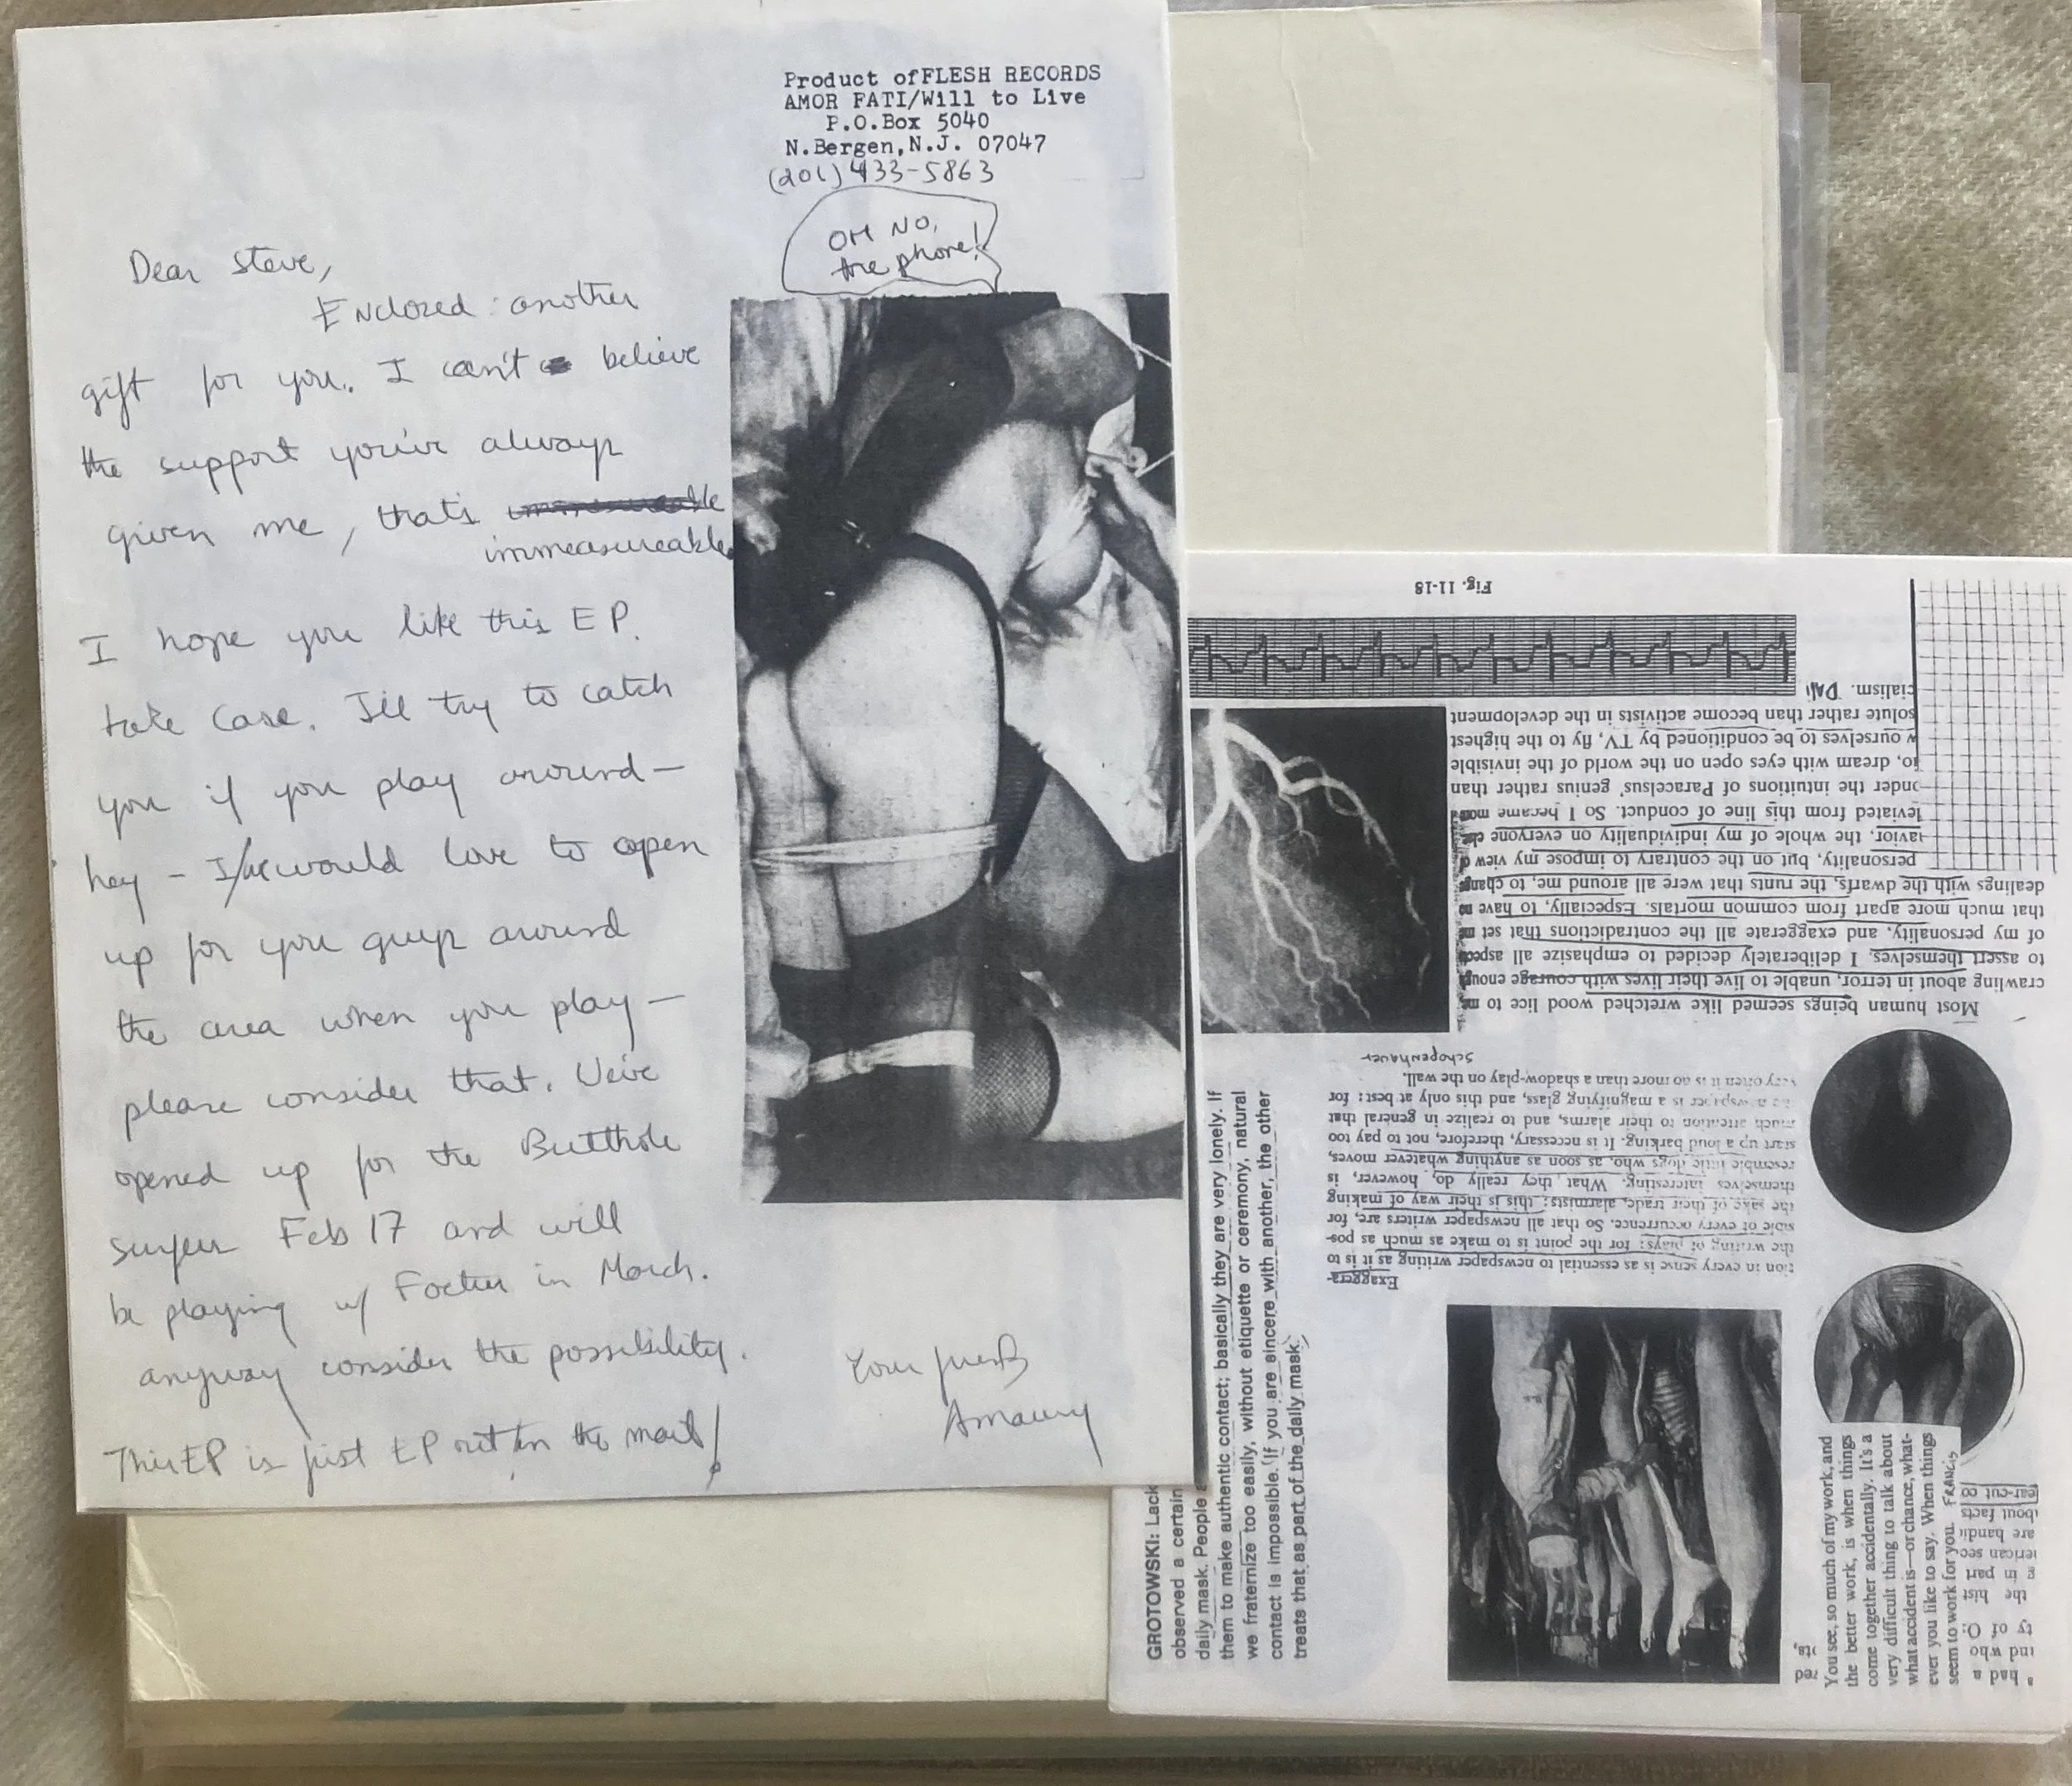 Product ofFLESH RECORDS
AMOR FATI/Will to Live
P.O.Box 5040
N.Bergen,N.J. 07047
(201) 433-5863
OH NO,
the phone!
Dear Steve,
Enclozed : another
gift for you. I can't believe
the support you've always
given me, that's
immeasureable
I hope you like this EP.
take care. I'll try to catch
you if you play around—
hey – I/we would love to open
up for you guys around
the area when you play—
please consider that. We've
opened up for the Butthole
surfers Feb 17 and will
be playing w/ Foetus in March.
anyway consider the possibility.
This EP is just EP out in the mail!
Your friend
Amaury
Fig. 11-18
Most human beings seemed like wretched wood lice to me,
crawling about in terror, unable to live their lives with courage enough
to assert themselves. I deliberately decided to emphasize all aspects
of my personality, and exaggerate all the contradictions that set me
that much more apart from common mortals. Especially, to have no
dealings with the dwarfs, the runts that were all around me, to change
personality, but on the contrary to impose my view of
the whole of my individuality on everyone
from this line of conduct. So I became
the intuitions of Paracelsus' genius rather than
dream with eyes open on the world of the invisible
ourselves to be conditioned by TV, fly to the highest
solute rather than become activists in the development
cialism. DALI
Exaggera-
tion in every sense is as essential to newspaper writing as it is to
the writing of plays: for the point is to make as much as pos-
sible of every occurrence. So that all newspaper writers are, for
the sake of their trade, alarmists: this is their way of making
themselves interesting. What they really do, however, is
resemble little dogs who, as soon as anything whatever moves,
start up a loud barking. It is necessary, therefore, not to pay too
much attention to their alarms, and to realize in general that
newspaper is a magnifying glass, and this only at best: for
very often it is no more than a shadow-play on the wall.
Schopenhauer
GROTOWSKI: Lack
observed a certain
daily mask. People
them to make authentic contact; basically they are very lonely. If
we fraternize too easily, without etiquette or ceremony, natural
contact is impossible. If you are sincere with another, the other
treats that as part of the daily mask.
You see, so much of my work, and
the better work, is when things
come together accidentally. It's a
very difficult thing to talk about
what accident is—or chance, what-
ever you like to say. When things
seem to work for you. FRANCIS
had a
ind who
ty of O:
the hist
g in part
erican sec
are handic
about facts
lear-cut